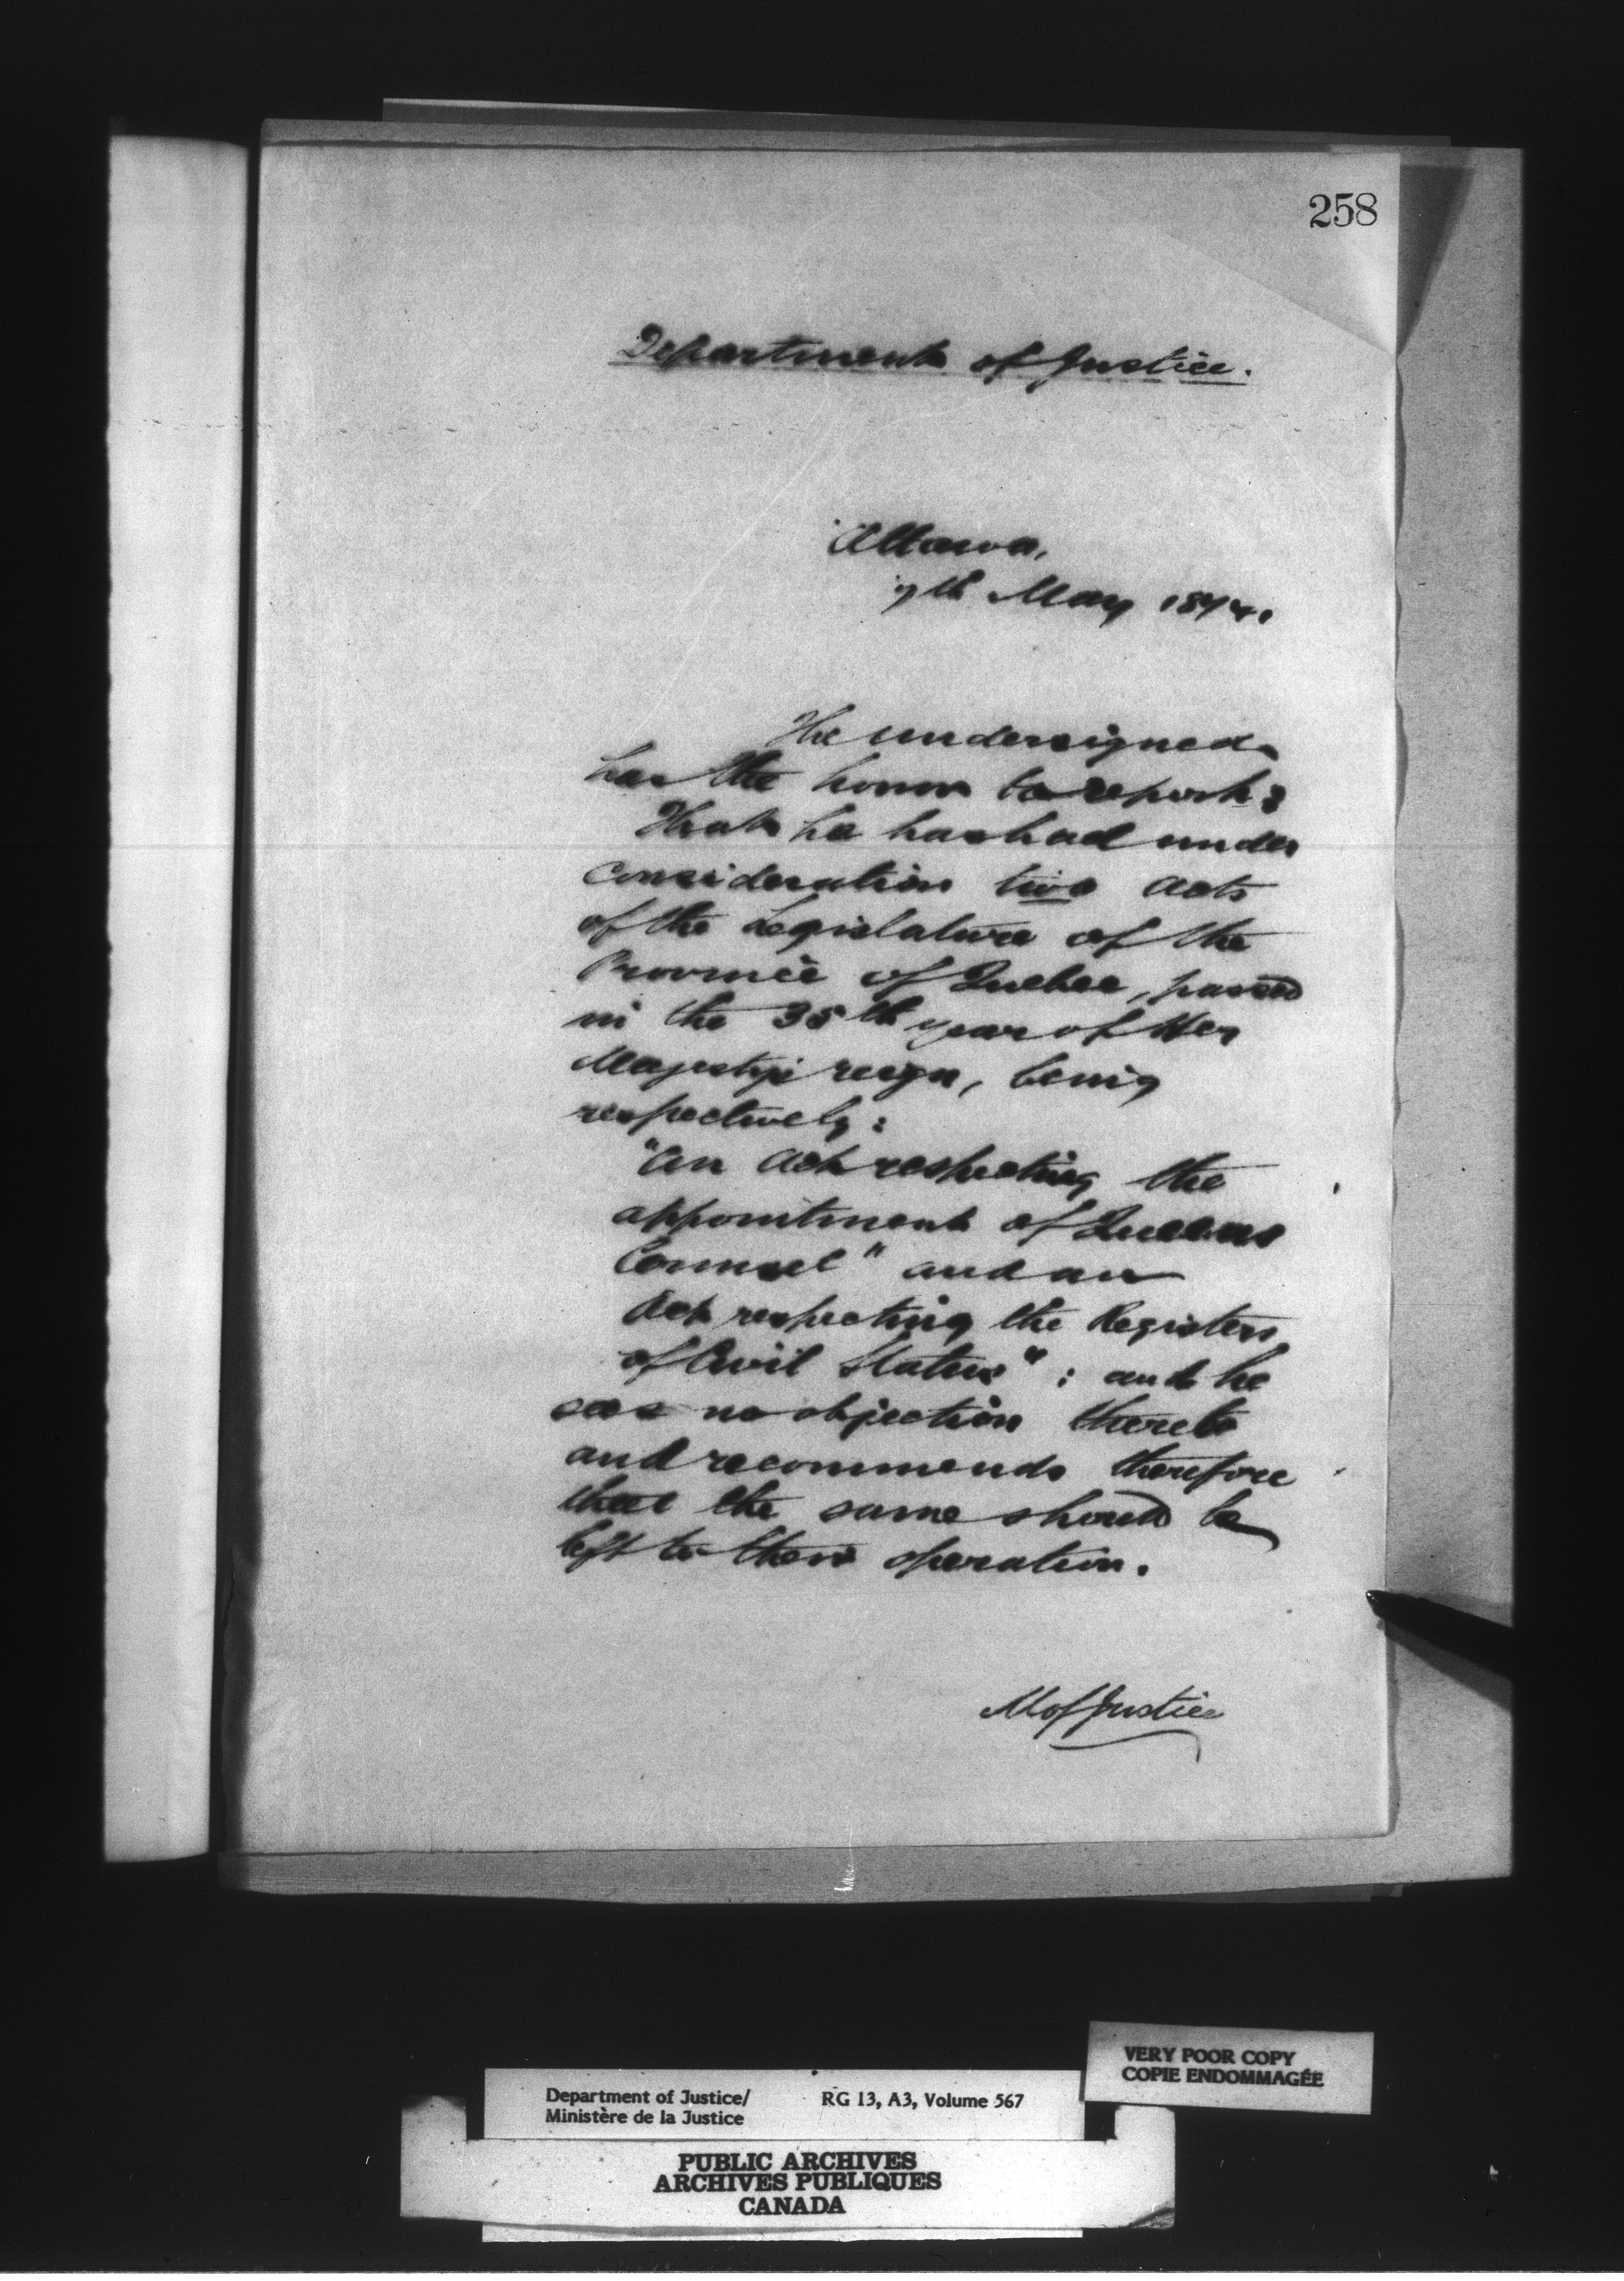 258
Department of Justice.
Ottawa,
7th May 1874.
The undersigned
has the honor to report:
That he has had under
consideration two acts
of the Legislature of the
Province of Quebec, passed
in the 35th year of Her
Majesty's reign, being
respectively:
"An Act respecting the
appointment of Queens
Counsel" and an
Act respecting the Registers
of Civil Status": and he
sees no objection thereto
and recommends therefore
that the same should be
left to their operation.
M of Justice
VERY POOR COPY
COPIE ENDOMMAGÉE
Department of Justice/ RG 13, A3, Volume 567
Ministère de la Justice
PUBLIC ARCHIVES
ARCHIVES PUBLIQUES
CANADA